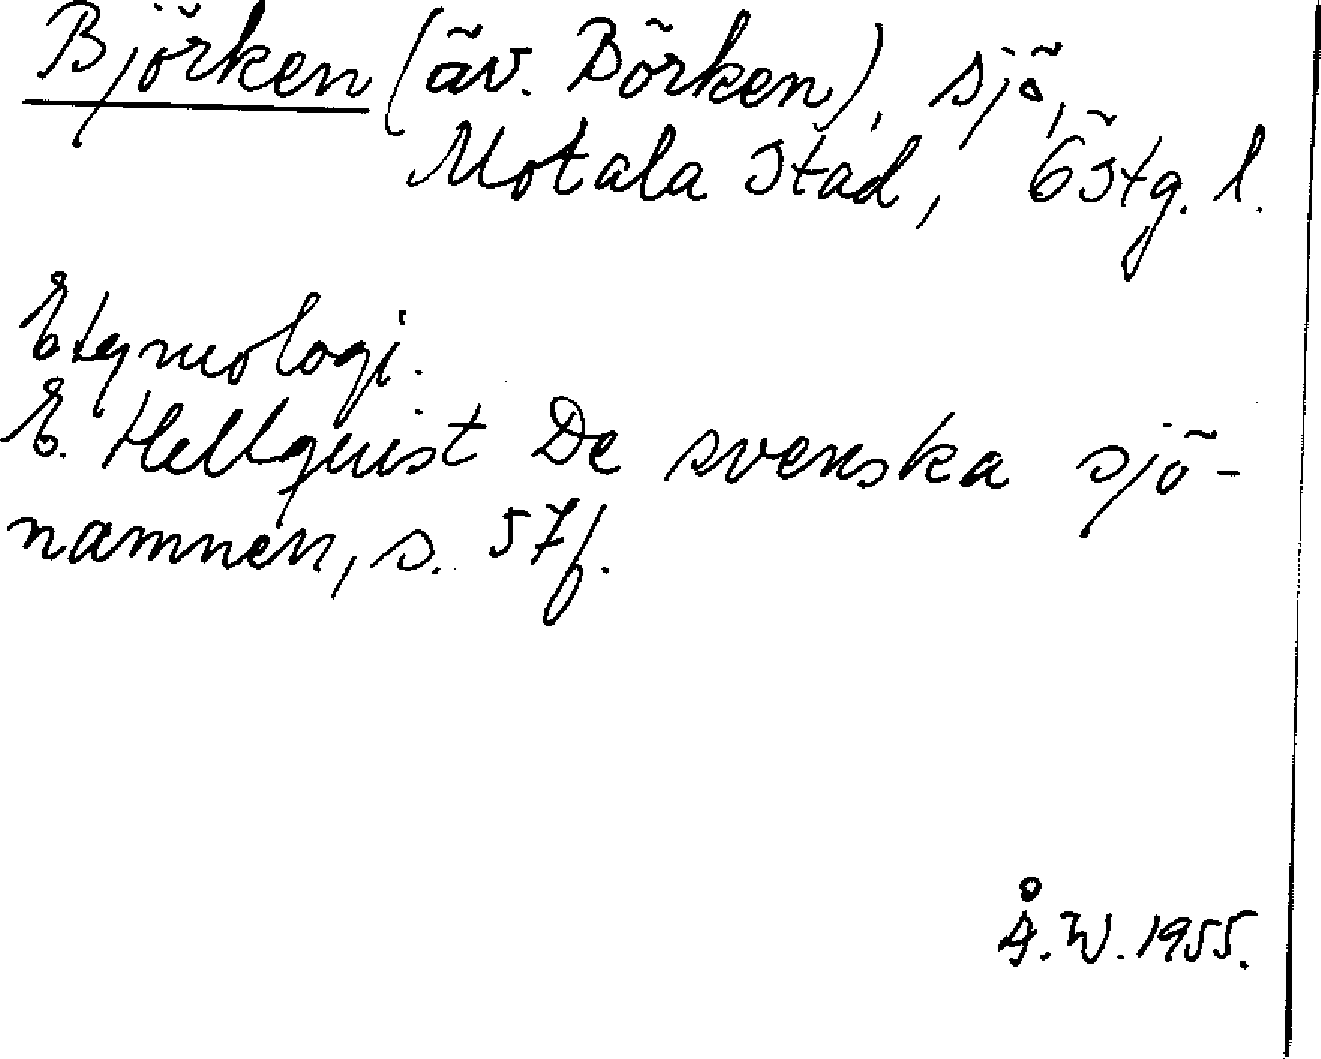 Björken (äv. Börken), sjö,
Motala stad, Östg. l.
Etymologi.
E. Hellquist De svenska sjö-
namnen, s. 57f.
Å. W. 1955.